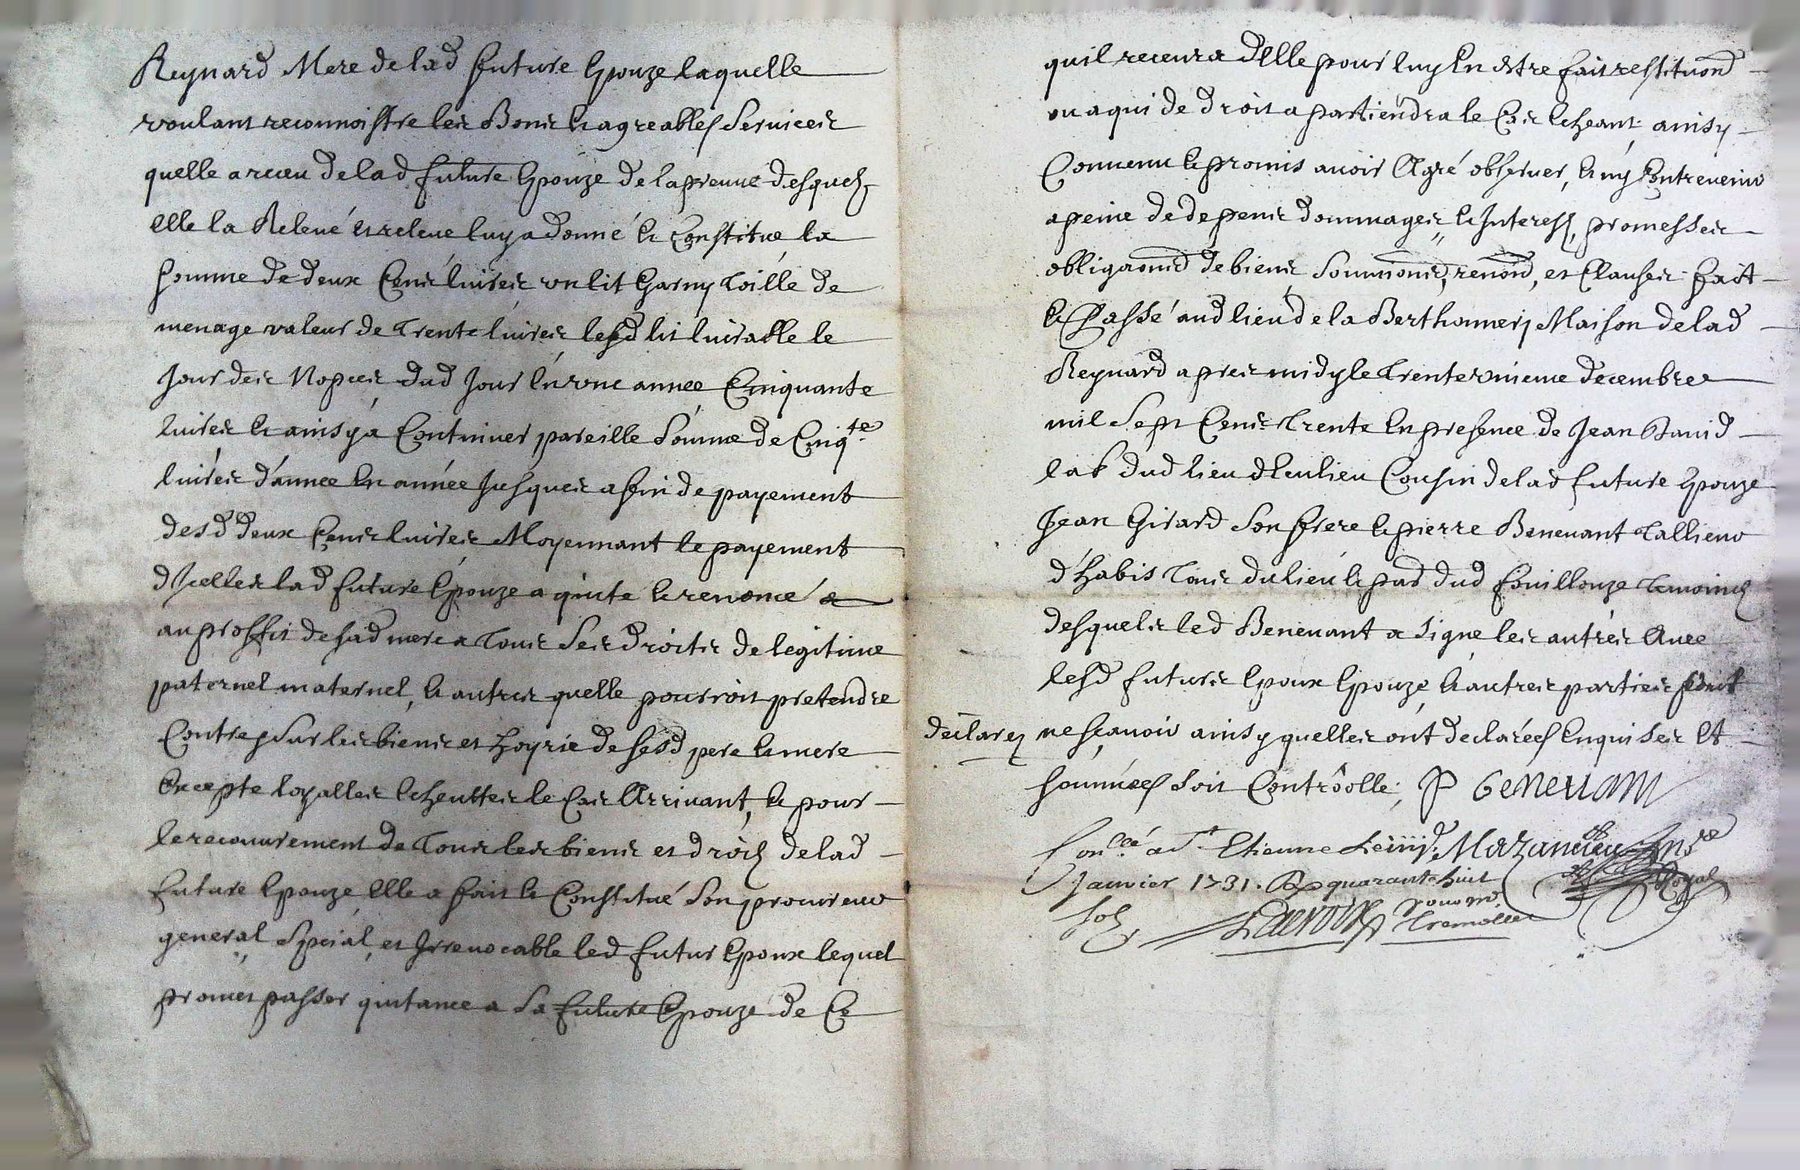 Reynard Mere de lad future Epouze laquelle
voulant reconnoistre les Bons et agreables Services
quelle a receu de lad future Epouze de la preuve desquels
elle la Relevé et releve luy a donné et Constitué la
somme de deux Cens livres un lit Garny Toille de
menage valeur de Trente livres lesd lit livrable le
Jour des Nopces dud Jour En une année Cinquante
livres et ainsy a Continuer pareille Somme de Cinqte
livres d'année En année Jusques a fin de payement
desd deux Cens livres Moyennant le payement
d Icelles lad future Epouze a quité et renoncé
au proffit de sad mere a Tous Ses droits de legitime
paternel maternel, et autres quelle pourroit pretendre
Contre et Sur les biens et hoyrie de sesd pere et mere
Excepte loyalles Echeuttes le Cas Arrivant, et pour
le recouvrement de Tous les biens et droits de lad
future Epouze Elle a fait et Constitué Son procureur
general Special, et Irrevocable led futur Epoux lequel
promet passer quitance a Sa future Epouze de Ce
quil recevra d'Elle pour luy En Estre fait restituond
ou a qui de droit apartiendra le Cas Echeant ainsy
Convenu et promis avoir Agré observer, et ny Contrevenir
a peine de depens dommages, et Interests, promesses
obligaonnd de biens Soumions, renond, et Clauses fait
et Passé aud lieu de la Berthomery Maison de lad
Reynard apres midy le Trente unieme decembre
mil Sept Cens Trente En presence de Jean David
lab dud lieu Cousin de lad future Epouze
Jean Girard Son frere et pierre Benevant Tallieur
d'habis Tous du lieu et par dud Fouillouze Temoins
desquels led Benevant a Signe les autres Avec
lesd futurs Epoux Epouze et autres parties
declarez ne sçavoir ainsy quelles ont declarées Enquises Et
sommées Soit Controolle; P Benevam
Conllé a St Etienne Le iiijd Mazancieu Nre
Janvier 1731. R quarante huit Royal
sols Lacroix pour mr
Tremollet